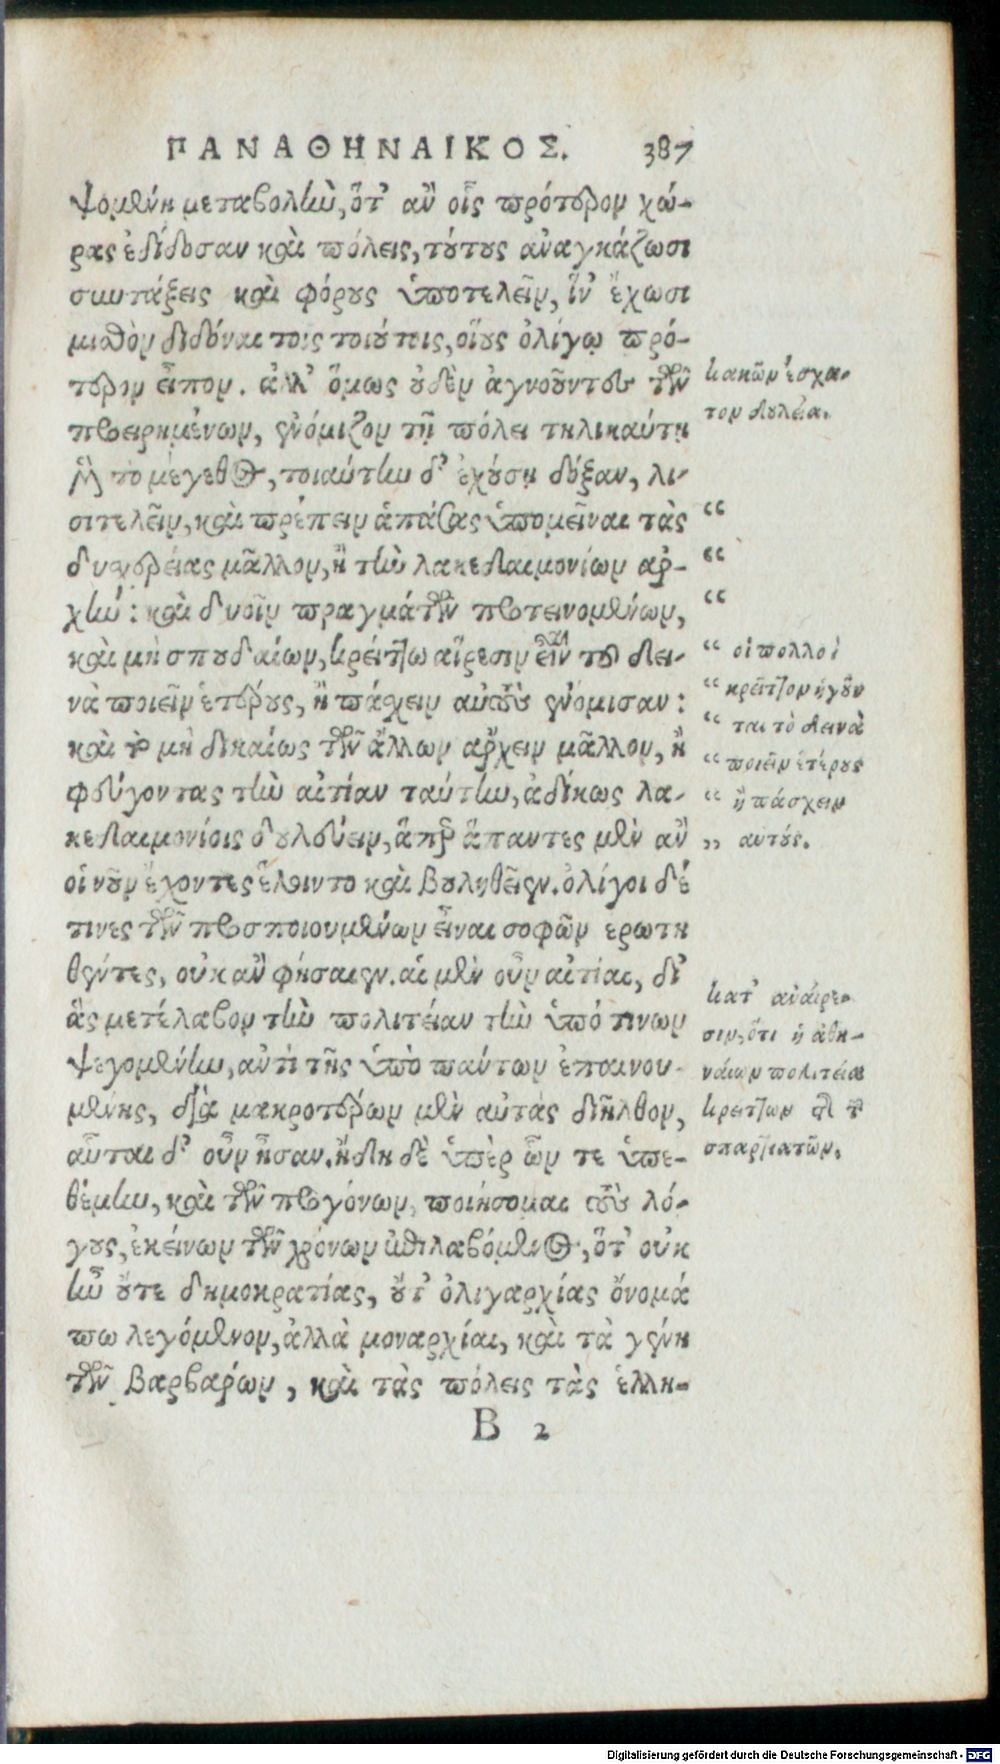 ΠΑΝΑΘΗΝΑΙΚΟΣ. 387
ψομένη μεταβολὴν, ὅτ' ἂν οἷς πρότερον χώ-
ρας ἐδίδοσαν καὶ πόλεις, τούτους ἀναγκάζωσι
συντάξεις καὶ φόρους ὑποτελεῖν, ἵν' ἔχωσι
μισθὸν διδόναι τοῖς τοιούτοις, οἵους ὀλίγῳ πρό-
τερον εἶπον. ἀλλ' ὅμως οὐδὲν ἀγνοοῦντες τῶν
προειρημένων, ἐνόμιζον τῇ πόλει τηλικαύτῃ
μὲν τὸ μέγεθος, τοιαύτην δ' ἐχούσῃ δόξαν, λυ-
σιτελεῖν, καὶ πρέπειν ἁπάσας ὑπομεῖναι τὰς
δυσχερείας μᾶλλον, ἢ τὴν λακεδαιμονίων ἀρ-
χήν: καὶ δυοῖν πραγμάτων προτεινομένων,
καὶ μὴ σπουδαίων, κρείττω αἵρεσιν εἶναι τοῦ δει-
νὰ ποιεῖν ἑτέρους, ἢ πάσχειν αὐτοὺς ἐνόμισαν:
καὶ τὸ μὴ δικαίως τῶν ἄλλων ἄρχειν μᾶλλον, ἢ
φεύγοντας τὴν αἰτίαν ταύτην, ἀδίκως λα-
κεδαιμονίοις δουλεύειν, ἅπερ ἅπαντες μὲν ἂν
οἱ νοῦν ἔχοντες ἕλοιντο καὶ βουληθεῖεν. ὀλίγοι δέ
τινες τῶν προσποιουμένων εἶναι σοφῶν ἐρωτη
θέντες, οὐκ ἂν φήσαιεν. αἱ μὲν οὖν αἰτίαι, δι'
ἃς μετέλαβον τὴν πολιτείαν τὴν ὑπό τινων
ψεγομένην, ἀντὶ τῆς ὑπὸ πάντων ἐπαινου-
μένης, διὰ μακροτέρων μὲν αὐτὰς διῆλθον,
αὗται δ' οὖν ἦσαν. ἤδη δὲ ὑπὲρ ὧν τε ὑπε-
θέμην, καὶ τῶν προγόνων, ποιήσομαι τοὺς λό-
γους, ἐκείνων τῶν χρόνων ἐπιλαβόμενος, ὅτ' οὐκ
ἦν οὔτε δημοκρατίας, οὔτ' ὀλιγαρχίας ὄνομά
πω λεγόμενον, ἀλλὰ μοναρχίαι, καὶ τὰ γένη
τῶν βαρβάρων, καὶ τὰς πόλεις τὰς ἑλλη-
B 2
κακῶν ἔσχα-
τον δουλεία.
“
“
“
“ οἱ πολλοὶ
“ κρεῖττον ἡγοῦν
“ ται τὸ δεινὰ
“ ποιεῖν ἑτέρους
“ ἢ πάσχειν
„ αὐτούς.
κατ' ἀναίρε-
σιν, ὅτι ἡ ἀθη-
ναίων πολιτεία
κρείττων
σπαρτιατῶν.
Digitalisierung gefördert durch die Deutsche Forschungsgemeinschaft - DFG